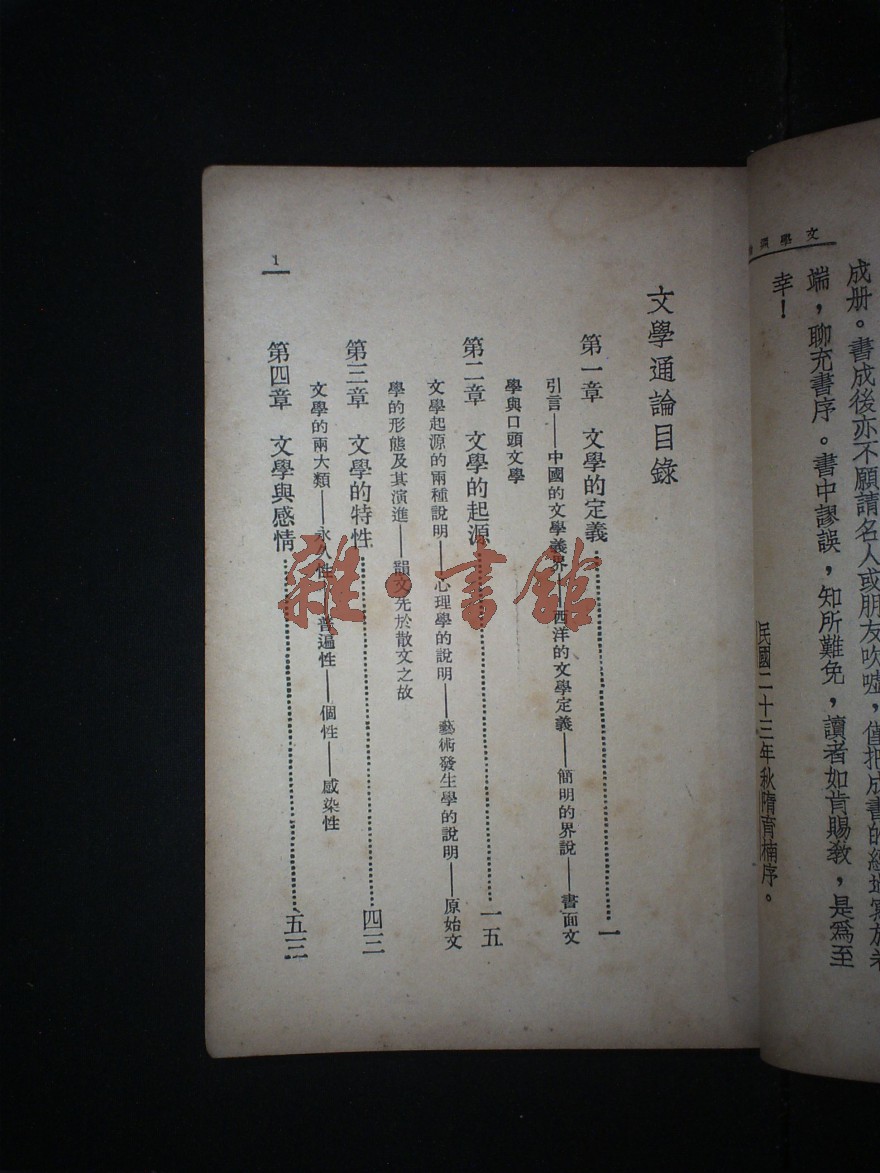 文學
成册。書成後亦不願請名人或朋友吹噓，僅把成書的經過寫於
端，聊充書序。書中謬誤，知所難免，讀者如肯賜敎，是爲至
幸！
民國二十三年秋隋育楠序。
文學通論目錄
第一章　文學的定義…………一
引言——中國的文學義界——西洋的文學定義——簡明的界說——書面文
學與口頭文學
第二章　文學的起源…………一五
文學起源的兩種說明——心理學的說明——藝術發生學的說明——原始文
學的形態及其演進——韻文先於散文之故
第三章　文學的特性…………四三
文學的兩大類——永久性——普遍性——個性——感染性
第四章　文學與感情…………五三
1
雜·書館